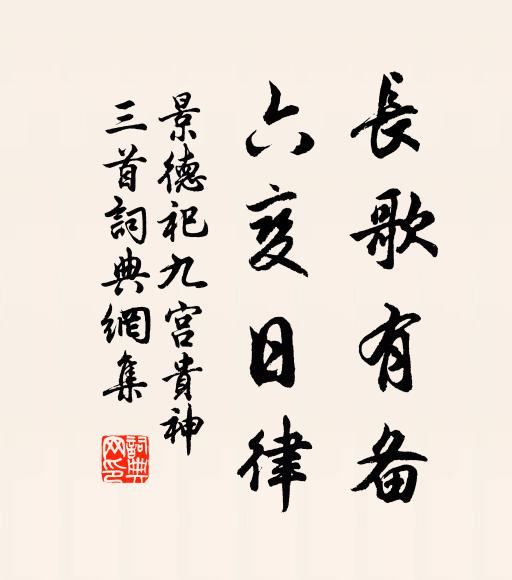 長歌有备
六变日律
景德祀九宫貴神
三首詞典網集
詞典网印